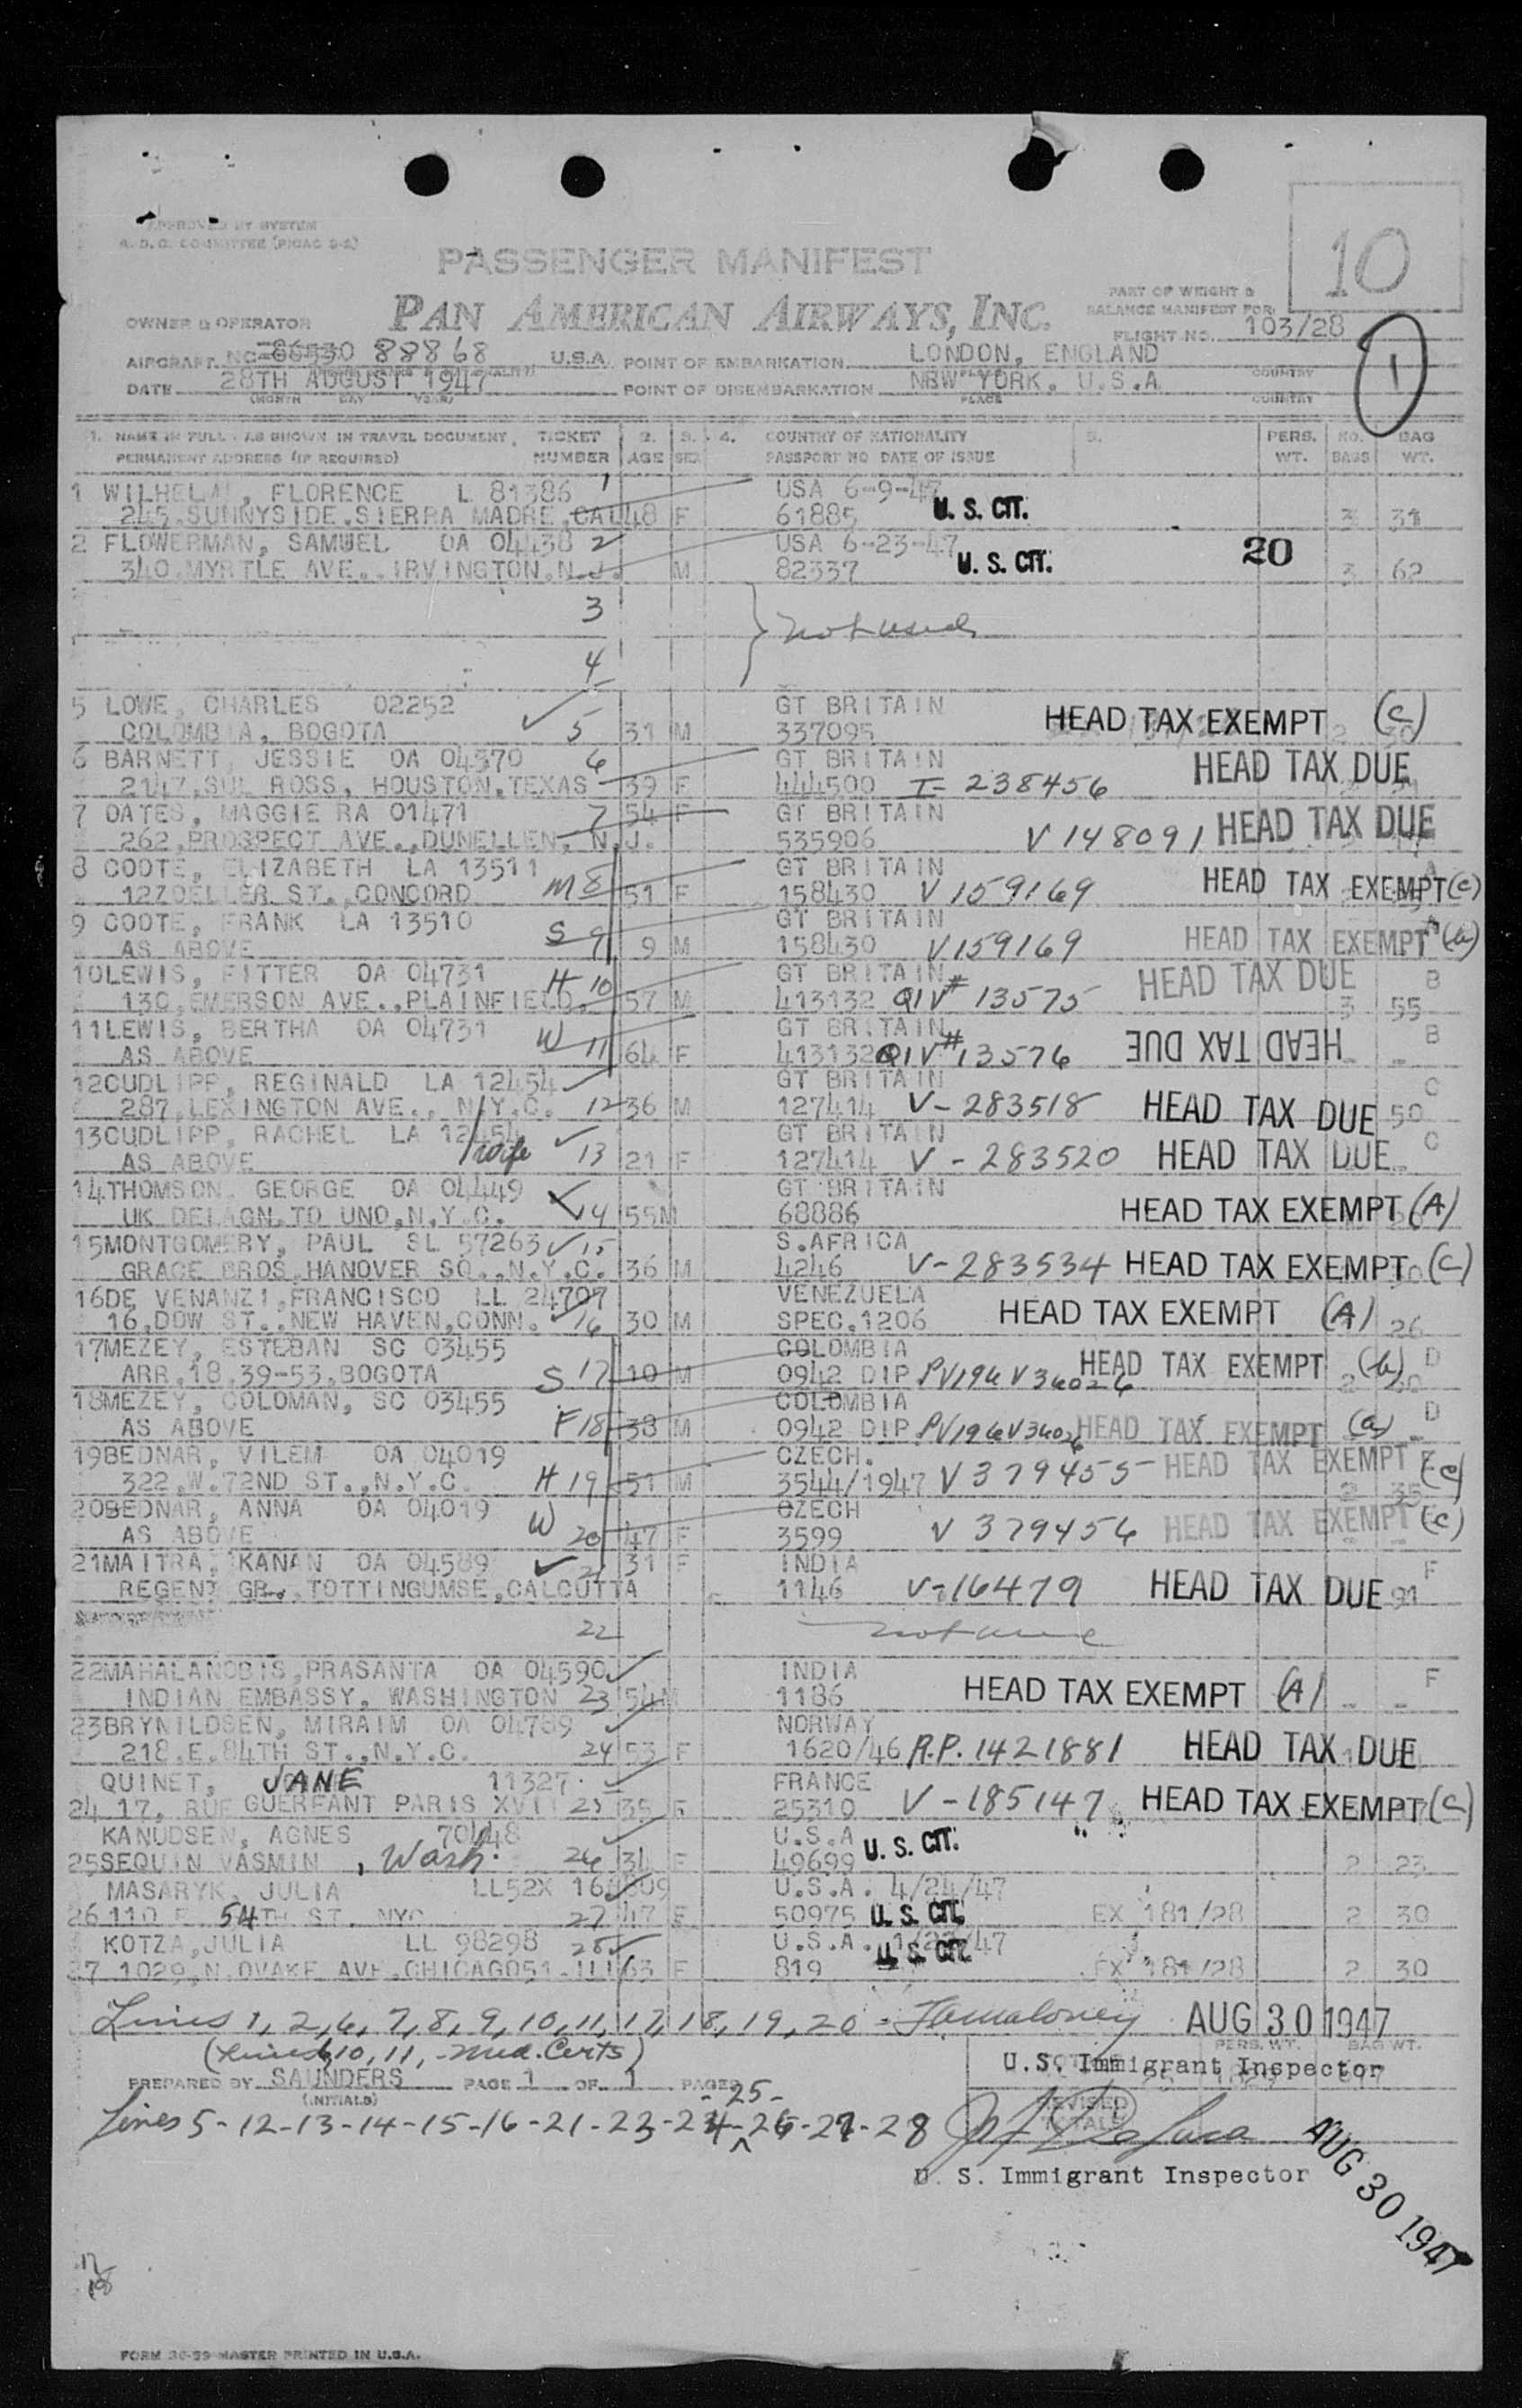 APPROVED BY SYSTEM
A.D.C. COMMITTEE (PICAO 8-2)
PASSENGER MANIFEST
10
PAN AMERICAN AIRWAYS, INC.
PART OF WEIGHT &
BALANCE MANIFEST FOR
OWNER & OPERATOR
FLIGHT NO. 103/28
AIRCRAFT NC-86530 88868 U.S.A. POINT OF EMBARKATION LONDON, ENGLAND
DATE 28TH AUGUST 1947 POINT OF DISEMBARKATION NEW YORK, U.S.A
(MONTH DAY YEAR) PLACE COUNTRY
1
1. NAME IN FULL - AS SHOWN IN TRAVEL DOCUMENT, TICKET 2. 3. 4. COUNTRY OF NATIONALITY 5. PERS. NO. BAG
PERMANENT ADDRESS (IF REQUIRED) NUMBER AGE SEX PASSPORT NO DATE OF ISSUE WT. BAGS WT.
1 WILHELM, FLORENCE L 81386 1 USA 6-9-47
245,SUNNYSIDE,SIERRA MADRE,CAL 48 F 61885 U. S. CIT. 3 31
2 FLOWERMAN, SAMUEL OA 04438 2 USA 6-23-47
340,MYRTLE AVE.,IRVINGTON,N.J. M 82337 U. S. CIT. 20 3 62
3
not used
4
5 LOWE, CHARLES 02252 GT BRITAIN
COLOMBIA, BOGOTA 5 31 M 337095 HEAD TAX EXEMPT (c)
6 BARNETT, JESSIE OA 04370 6 GT BRITAIN
2147,SUL ROSS, HOUSTON,TEXAS 39 F 444500 I- 238456 HEAD TAX DUE
7 OATES, MAGGIE RA 01471 7 54 F GT BRITAIN
262,PROSPECT AVE.,DUNELLEN, N.J. 535906 V 148091 HEAD TAX DUE
8 COOTE, ELIZABETH LA 13511 GT BRITAIN
12ZOELLER ST.,CONCORD M 8 51 F 158430 V 159169 HEAD TAX EXEMPT (c)
9 COOTE, FRANK LA 13510 GT BRITAIN
AS ABOVE S 9 9 M 158430 V.159169 HEAD TAX EXEMPT (b)
10LEWIS, FITTER OA 04731 H 10 GT BRITAIN
130,EMERSON AVE.,PLAINFIELD. 57 M 413132 QIV# 13575 HEAD TAX DUE 3 55 B
11LEWIS, BERTHA OA 04731 GT BRITAIN
AS ABOVE W 11 64 F 413132 QIV# 13576 HEAD TAX DUE B
12CUDLIPP, REGINALD LA 12454 GT BRITAIN
287,LEXINGTON AVE., N.Y.C. 12 36 M 127414 V- 283518 HEAD TAX DUE 50 C
13CUDLIPP, RACHEL LA 12454 GT BRITAIN
AS ABOVE wife 13 21 F 127414 V - 283520 HEAD TAX DUE C
14THOMSON, GEORGE OA 04449 GT BRITAIN
UK DELAGN.TO UNO,N.Y.C. 14 55M 68886 HEAD TAX EXEMPT (A)
15MONTGOMERY, PAUL SL 57263 15 S.AFRICA
GRACE BROS,HANOVER SQ.,N.Y.C. 36 M 4246 V-283534 HEAD TAX EXEMPT (c)
16DE VENANZI,FRANCISCO LL 24707 VENEZUELA
16,DOW ST.,NEW HAVEN,CONN. 16 30 M SPEC.1206 HEAD TAX EXEMPT (A) 26
17MEZEY, ESTEBAN SC 03455 COLOMBIA
ARR,18,39-53,BOGOTA S 17 10 M 0942 DIP PV196 V36026 HEAD TAX EXEMPT (b) D
18MEZEY, COLOMAN, SC 03455 COLOMBIA
AS ABOVE F 18 38 M 0942 DIP PV196 V36026 HEAD TAX EXEMPT (a) D
19BEDNAR, VILEM OA 04019 CZECH.
322,W.72ND ST.,N.Y.C. H 19 51 M 3544/1947 V 379455 HEAD TAX EXEMPT (c) 2 35
20BEDNAR, ANNA OA 04019 CZECH
AS ABOVE W 20 47 F 3599 V 379456 HEAD TAX EXEMPT (c)
21MAITRA, KANAN OA 04589 21 31 F INDIA
REGENT GR., TOTTINGUMSE,CALCUTTA 1146 V-16479 HEAD TAX DUE 91 F
22
22MAHALANOBIS,PRASANTA OA 04590 INDIA
INDIAN EMBASSY, WASHINGTON 23 54M 1186 HEAD TAX EXEMPT (A) F
23BRYNILDSEN, MIRAIM OA 04789 NORWAY
218,E.84TH ST.,N.Y.C. 24 53 F 1620/46 R.P. 1421881 HEAD TAX DUE
QUINET, JANE 11327 FRANCE
24 17, RUE GUERFANT PARIS XVII 25 35 F 25310 V -185147 HEAD TAX EXEMPT (c)
KANUDSEN, AGNES 70448 U.S.A U. S. CIT.
25SEQUIN VASMIN, Wash. 26 34 F 49699 2 23
MASARYK, JULIA LL52X U.S.A. 4/24/47
26 110 E 54TH ST. NYC 27 47 F 50975 U. S. CIT. EX 181/28 2 30
KOTZA,JULIA LL 98298 28 U.S.A. U. S. CIT.
27 1029,N.OVAKE AVE.CHICAGO51.ILL 63 F 819 EX 181/28 2 30
Lines 1, 2, 6, 7, 8, 9, 10, 11, 17, 18, 19, 20 - AUG 30 1947
(Lines 6, 10, 11, - Med. Certs) PERS. WT. BAG WT.
U.S. Immigrant Inspector
PREPARED BY SAUNDERS PAGE 1 OF 1 PAGES
(INITIALS) REVISED TOTALS
-25-
Lines 5-12-13-14-15-16-21-23-24-26-27-28
U. S. Immigrant Inspector
AUG 30 1947
17
18
FORM 36-99 MASTER PRINTED IN U.S.A.